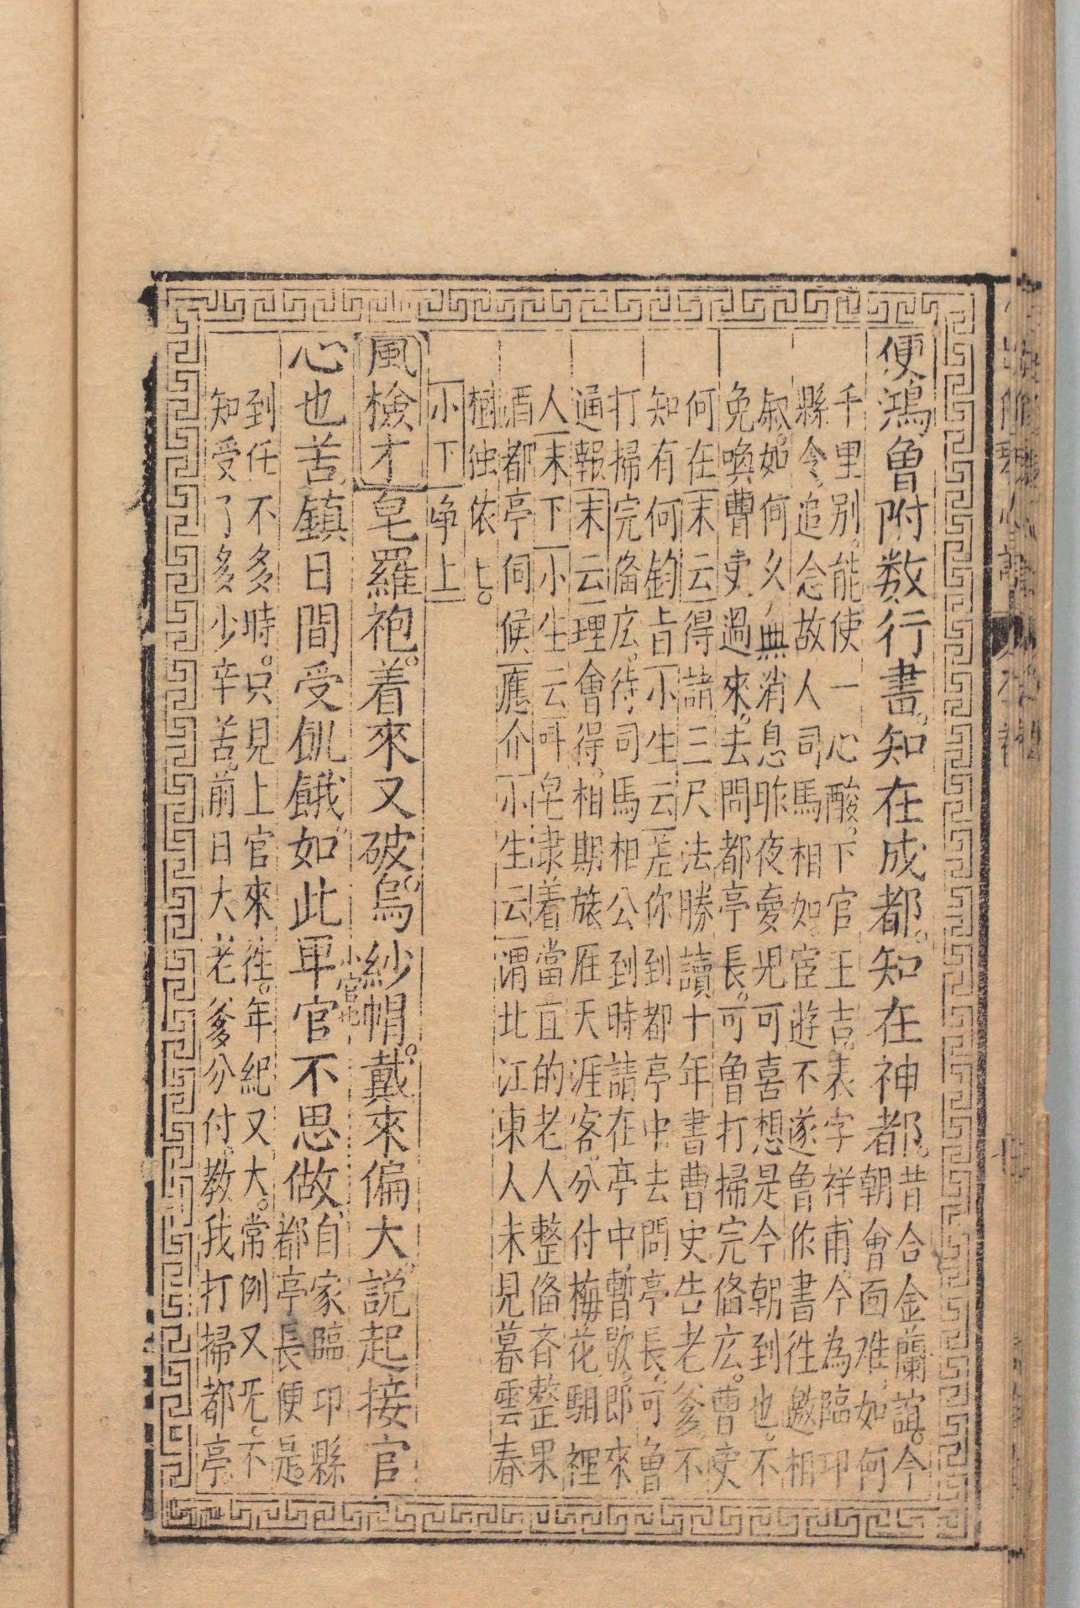 便鴻魯附数行書知在成都知在神都昔合金蘭誼今
朝會面难如何
千里別能使一心酸下官王吉表字祥甫今為臨卭
縣令追念故人司馬相如宦遊不遂魯作書徃邀相
叙如何久無消息昨夜夢兆可喜想是今朝到也不
免喚曹吏過來去問都亭長可魯打掃完俻庅曹吏
何在末云得諸三尺法勝讀十年書曹吏告老爹不
知有何鈞旨小生云差你到都亭中去問亭長可魯
打掃完俻庅待司馬相公到時請在亭中暫歇即來
通報末云理會得相期旅雁天涯客分付梅花馹裡
人末下小生云呌皂隶着當直的老人整俻斉整果
酒都亭伺候應介小生云渭北江東人未見暮雲春
樹独依七
小下净上
風檢才皂羅袍着來又破烏紗帽戴來偏大說起接官
心也苦鎮日間受飢餓如此卑官不思做自家臨卭縣
小官吒
都亭長便是
到任不多時只見上官來徃年紀又大常例又旡不
知受了多少辛苦前日大老爹分付教我打掃都亭